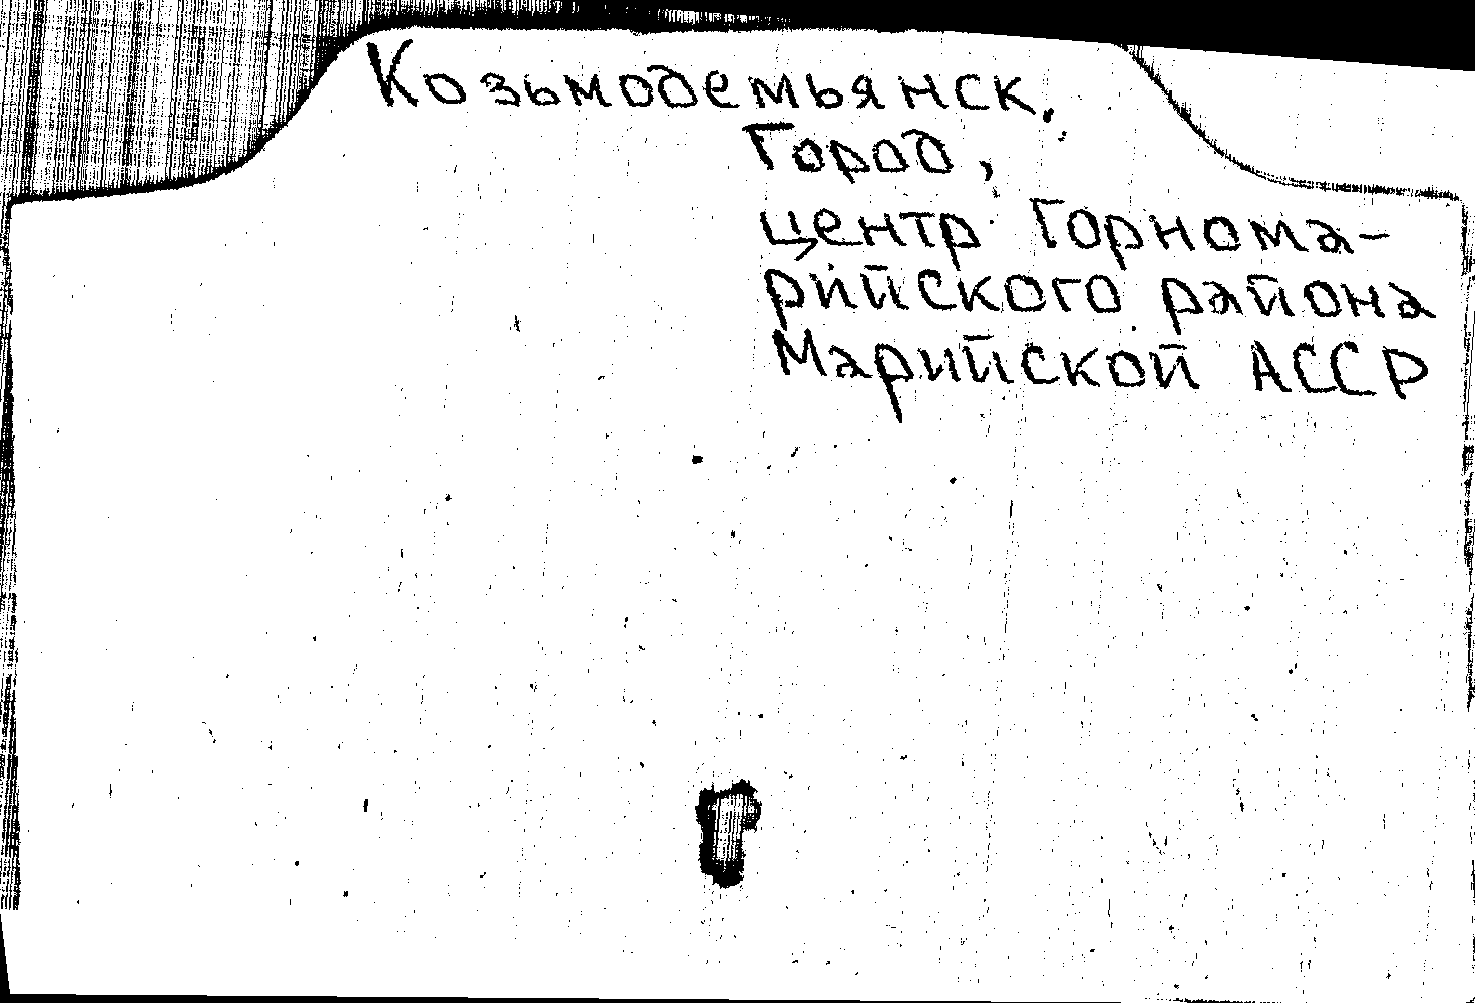 Козьмодемьянск.
Город,
центр Горнома-
рийского района
Марийской АССР